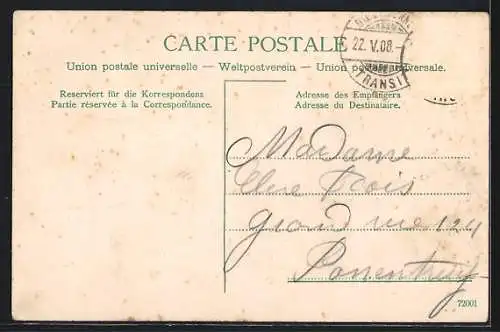 CARTE POSTALE
Union postale universelle — Weltpostverein — Union postale universale.
22. V. 08.
TRANSIT
Reserviert für die Korrespondens
Partie réservée à la Correspondance.
Adresse des Empfängers
Adresse du Destinataire.
Madame
grand rue 124
Porrentruy
72001